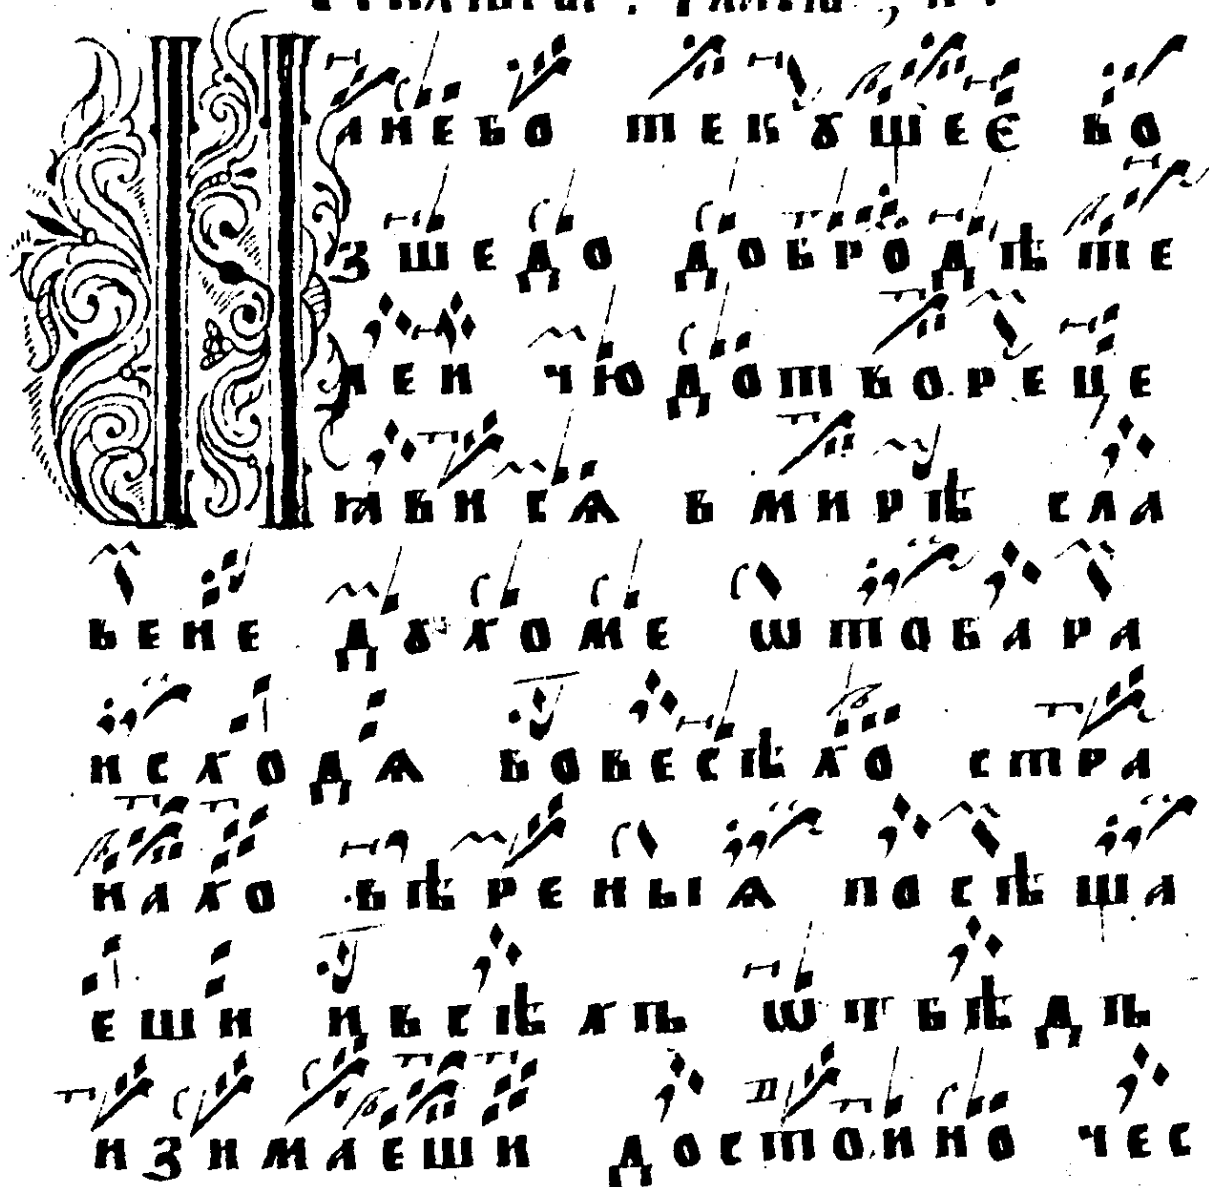 Нанебо текꙋщее во
зшедо добродѣте
леи чюдотвореце
ꙗвисѧ в мирѣ сла
вене дꙋхоме ѿ товара
исходѧ вовесѣхо стра
нахо вѣреныѧ посѣща
еши ивсѣхъ ѿ бѣдъ
изимаеши достоино чес